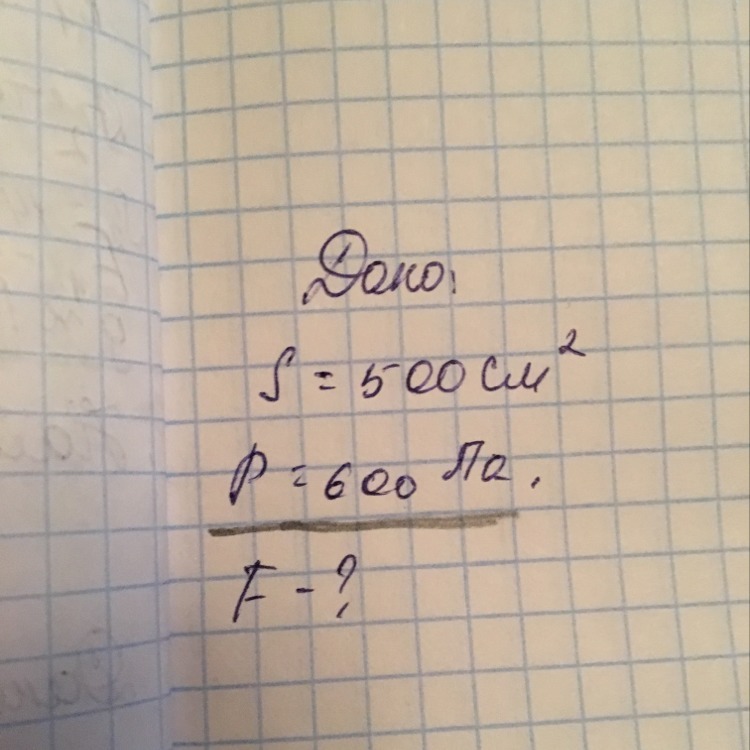 Дано:
S = 500 см²
P = 600 Па.
F - ?